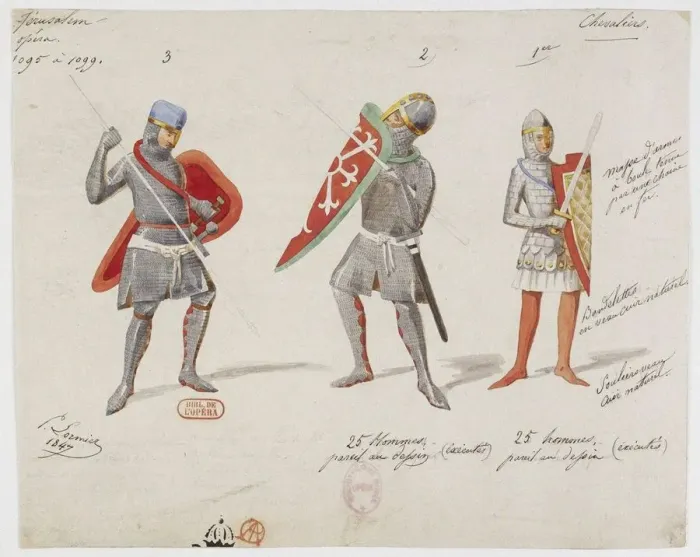 Jérusalem-
opéra.
1095 à 1099.
Chevaliers.
3
2
1er
masse d'armes
à boule tenue
par une chaine
en fer.
Bandelettes
en veau cuir naturel.
Souliers veau
cuir naturel.
P. Lormier
1847
BIBL. DE
L'OPÉRA
25 Hommes.
pareil au dessin (exécutés)
25 hommes.
pareil au dessin (exécutés)